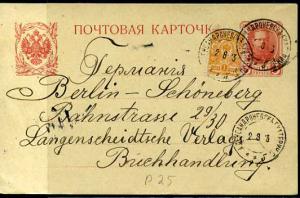 ПОЧТОВАЯ КАРТОЧКА
Германія
Berlin-Schöneberg
Bahnstrasse 29/30
Langenscheidtsche Verlags
Buchhandlung
P25